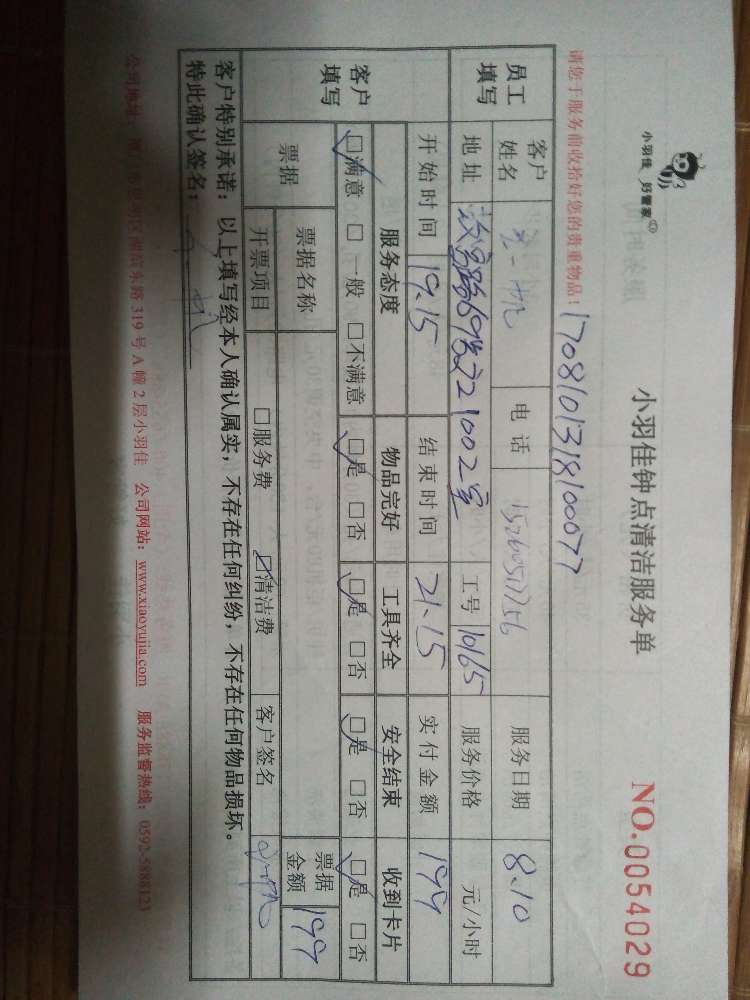 小羽佳 好管家
小羽佳钟点清洁服务单
NO.0054029
请您于服务前收拾好您的贵重物品！
1708101318100077
员工填写
客户姓名
电话
服务日期 8.10
地址
1002室
工号 10165
服务价格 元/小时
开始时间 19.15
结束时间 21.15
实付金额 199
客户填写
服务态度 物品完好 工具齐全 安全结束 收到卡片
☑满意 □一般 □不满意 ☑是 □否 ☑是 □否 ☑是 □否 ☑是 □否
票据
票据名称
票据金额 199
开票项目 □服务费 ☑清洁费 客户签名
客户特别承诺：以上填写经本人确认属实，不存在任何纠纷，不存在任何物品损坏。
特此确认签名：
公司地址：厦门市思明区湖滨东路 319 号 A 幢 2 层小羽佳 公司网站：www.xiaoyujia.com 服务监督热线：0592-5888123